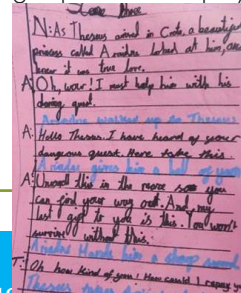 N: As Theseus arrived in Crete, a beautiful
princess called Ariadne looked at him, and
knew it was true love.
A: Oh, wow! I must help him with his
daring quest.
Ariadne walked up to Theseus
A: Hello Theseus. I have heard of your
dangerous quest. Here take this.
Ariadne gives him a ball of
A: Unravel this in the maze so you
can find your way out. And my
last gift to you is this. You won't
survive without this.
Ariadne Hands him a sharp sword
T: Oh how kind of you! How could I repay
Theseus takes